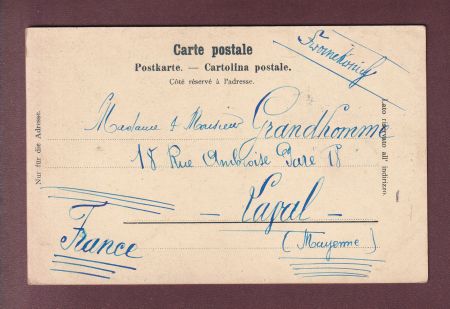 Carte postale
Postkarte. — Cartolina postale.
Côté réservé à l'adresse.
Nur für die Adresse.
Lato riservato all' indirizzo.
Madame & Monsieur Grandhomme
18 Rue Ambroise Paré 18
- Laval -
(Mayenne)
France